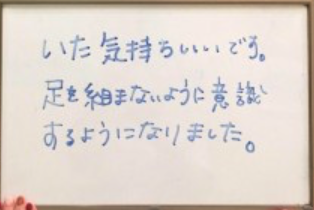 いた気持ちいいです。
足を組まないように意識
するようになりました。